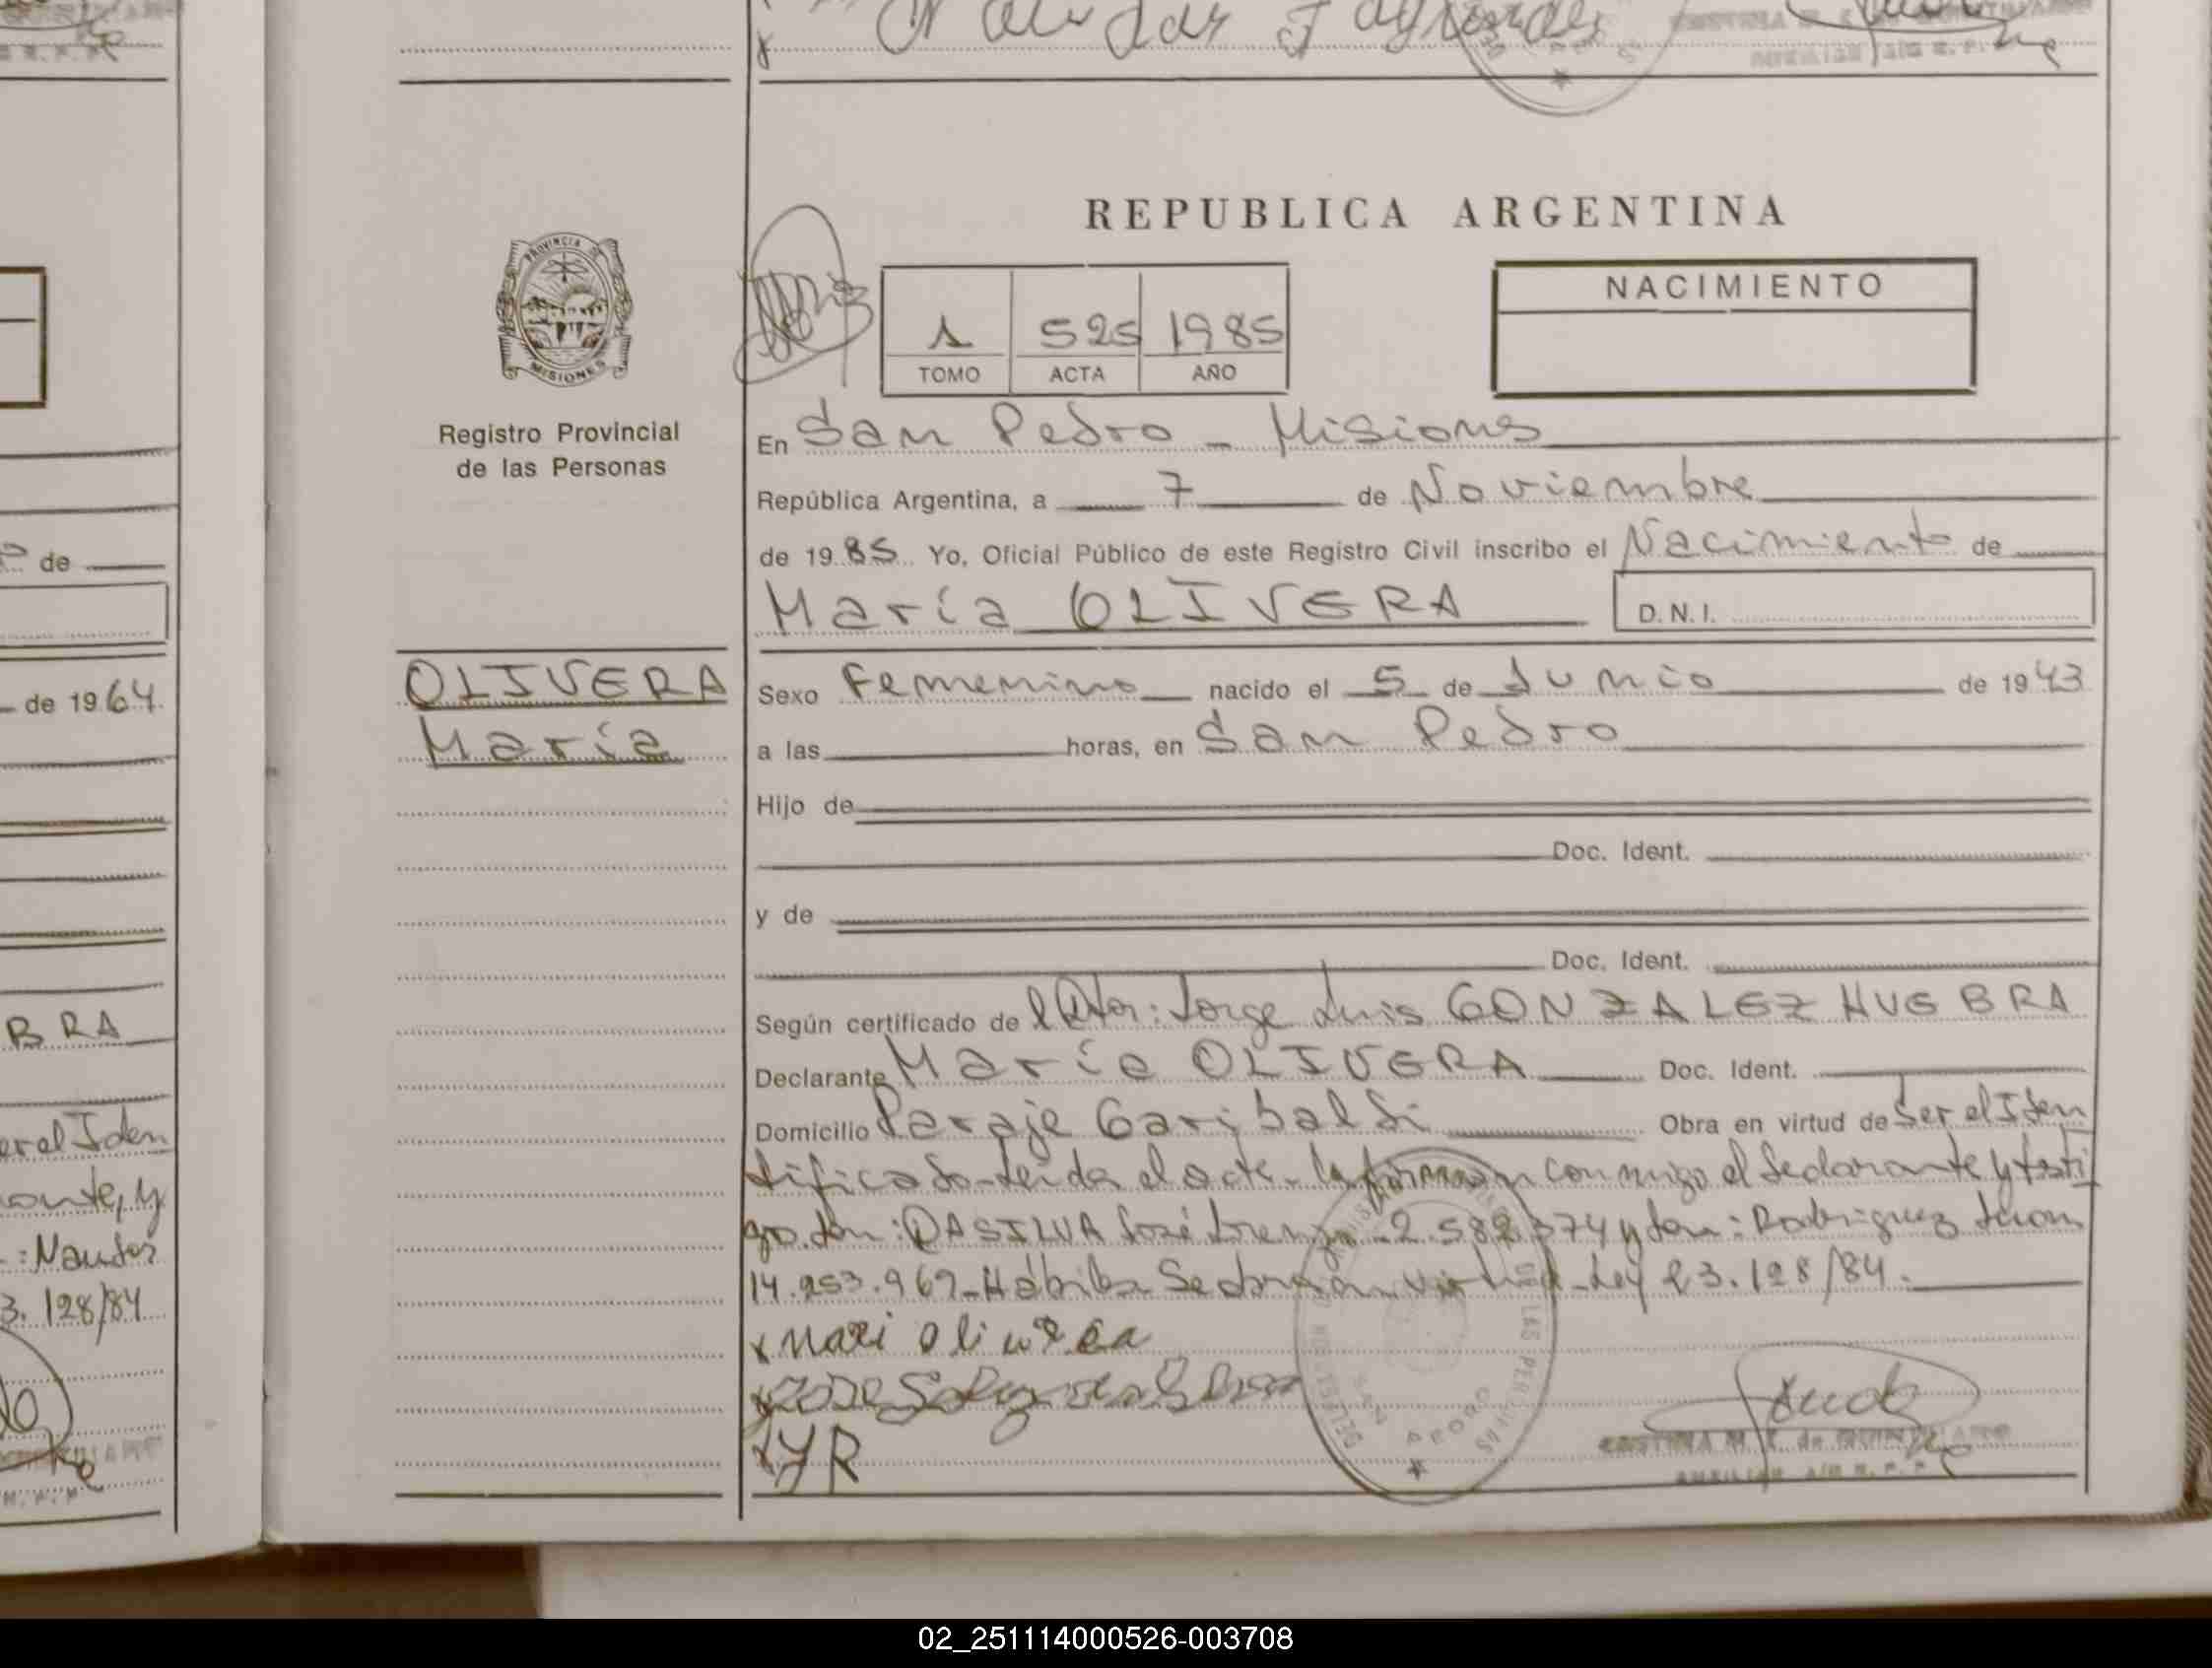 REPUBLICA ARGENTINA
PROVINCIA DE
MISIONES
Registro Provincial
de las Personas
1 525 1985
TOMO ACTA AÑO
NACIMIENTO
En San Pedro - Misiones
República Argentina, a 7 de Noviembre
de 1985. Yo, Oficial Público de este Registro Civil inscribo el Nacimiento de
María OLIVERA
D.N.I.
OLIVERA
María
Sexo Femenino nacido el 5 de Junio de 1943
a las horas, en San Pedro
Hijo de
Doc. Ident.
y de
Doc. Ident.
Según certificado de l Dtor: Jorge Luis GONZALEZ HUEBRA
Declarante María OLIVERA Doc. Ident.
Domicilio Paraje Garibaldi Obra en virtud de Ser el Iden
tificado-leída el acta-la firman conmigo el declarante y testi
go.don: DASILVA José 2.582.374 y don: Rodriguez Juan
14.253.969-Hábiles Ley 23.128/84.
x Mari olivera
x JR
CRISTINA M. E. de QUINTILIANO
AUXILIAR A/C R. P. P.
de
de 1964.
BRA
er el Iden
ante, y
: Nandor
3.128/84
02_251114000526-003708